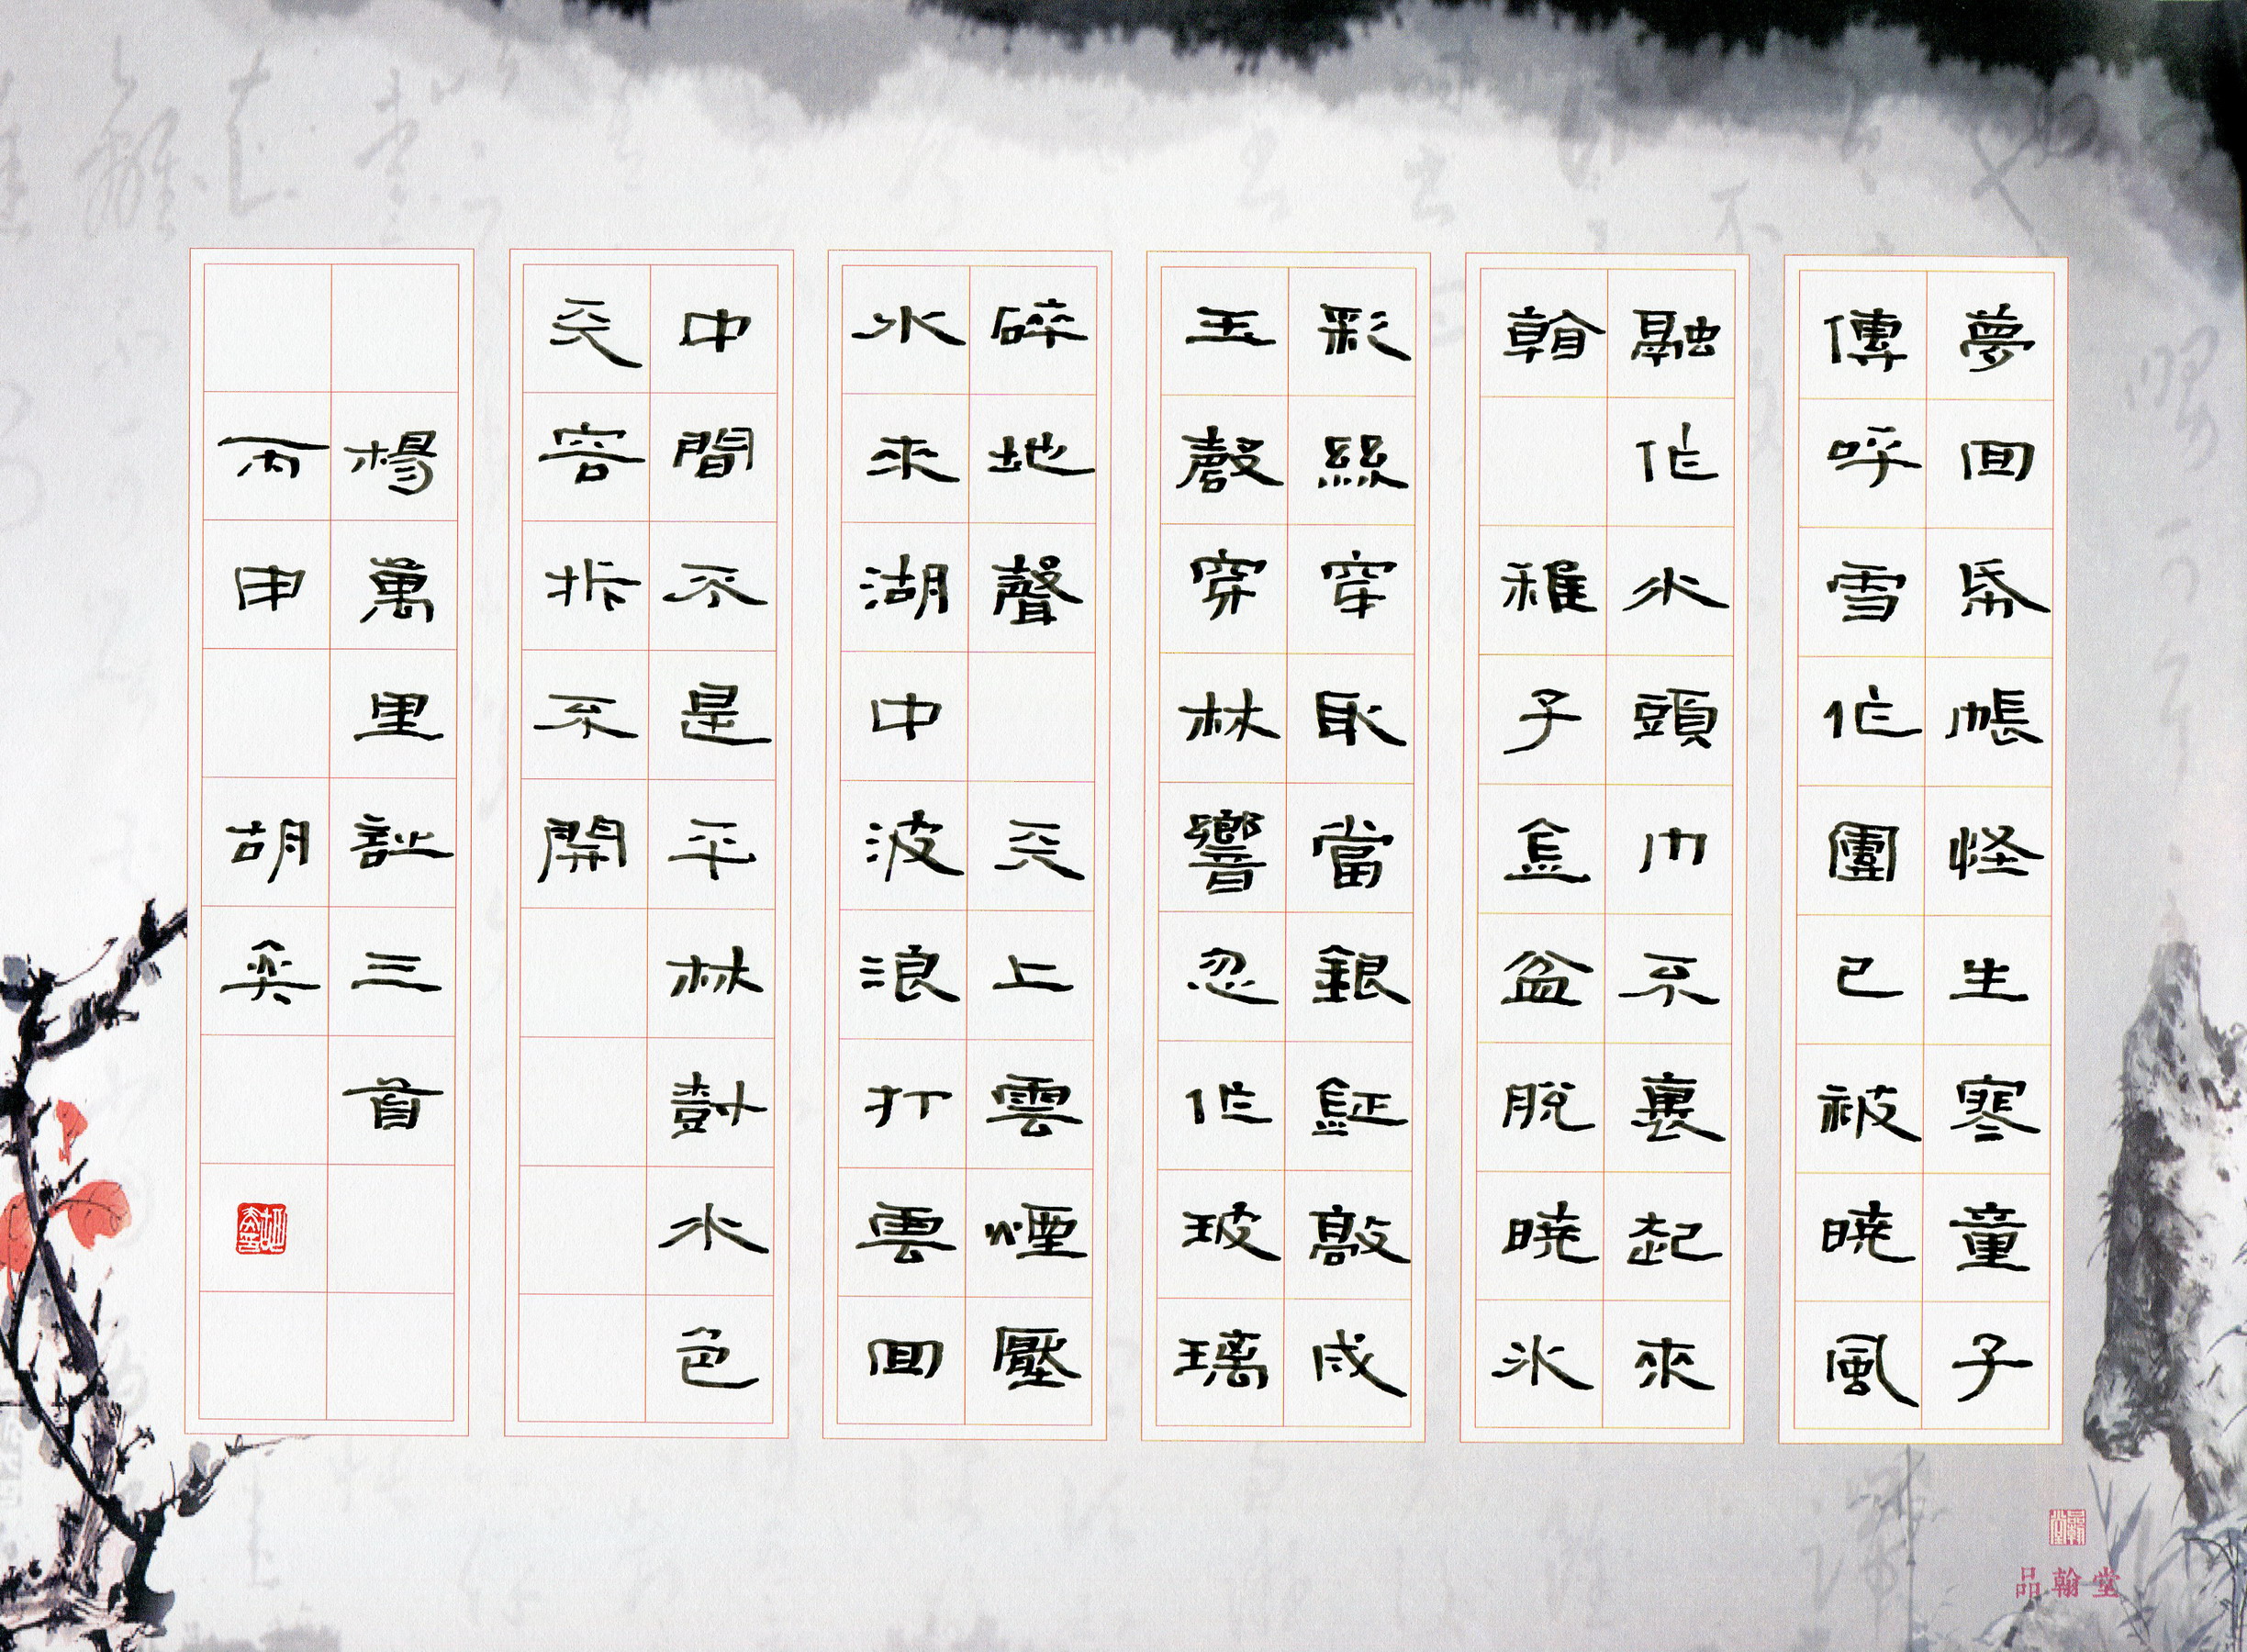 夢回帋帳怪生寒童子
傳呼雪作團已被曉風
融作水頭巾不裹起來
看 稚子金盆脫曉冰
彩絲穿取當銀鉦敲成
玉磬穿林響忽作玻璃
碎地聲 天上雲煙壓
水來湖中波浪打雲回
中間不是平林樹水色
天容拆不開
楊萬里詩三首
丙申 胡奕
品翰堂